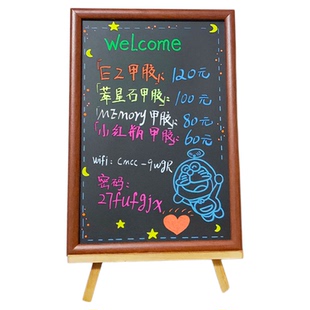 Welcome
EZ甲胶：120元
萃星石甲胶：100元
MEmory甲胶：80元
小红瓶甲胶：60元
wifi: Cmcc-9wgR
密码：
27fufgjx